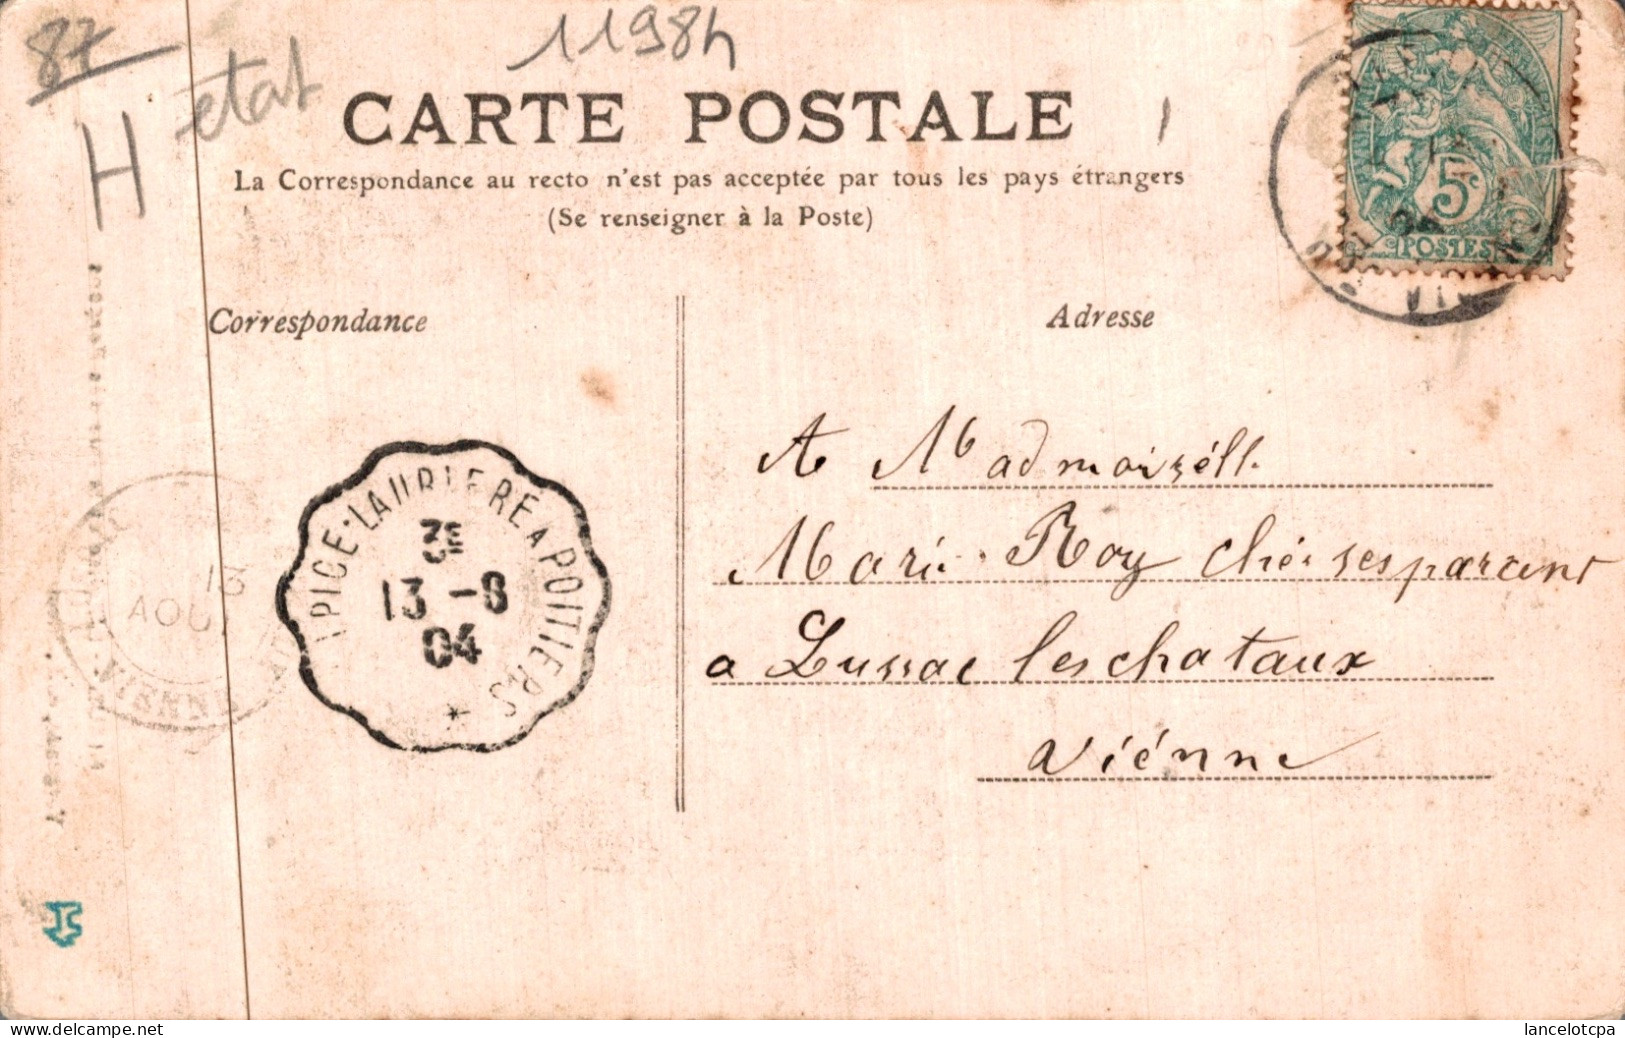 87
H
etat
11984
CARTE POSTALE
La Correspondance au recto n'est pas acceptée par tous les pays étrangers
(Se renseigner à la Poste)
5c
POSTES
Correspondance
Adresse
A Madmoizéll.
Marie Roy ché ses parent
a Lussac les chataux
viénne
PICE-LAURIERE A POITIERS
3E
13 -8
04
13
AOU
VIENNE
lancelotcpa